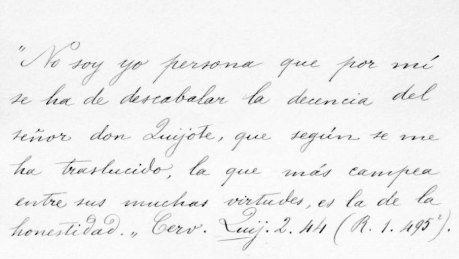 "No soy yo persona que por mí
se ha de descabalar la decencia del
señor don Quijote, que según se me
ha traslucido, la que más campea
entre sus muchas virtudes, es la de la
honestidad." Cerv. Quij. 2. 44 (R. 1. 495²).